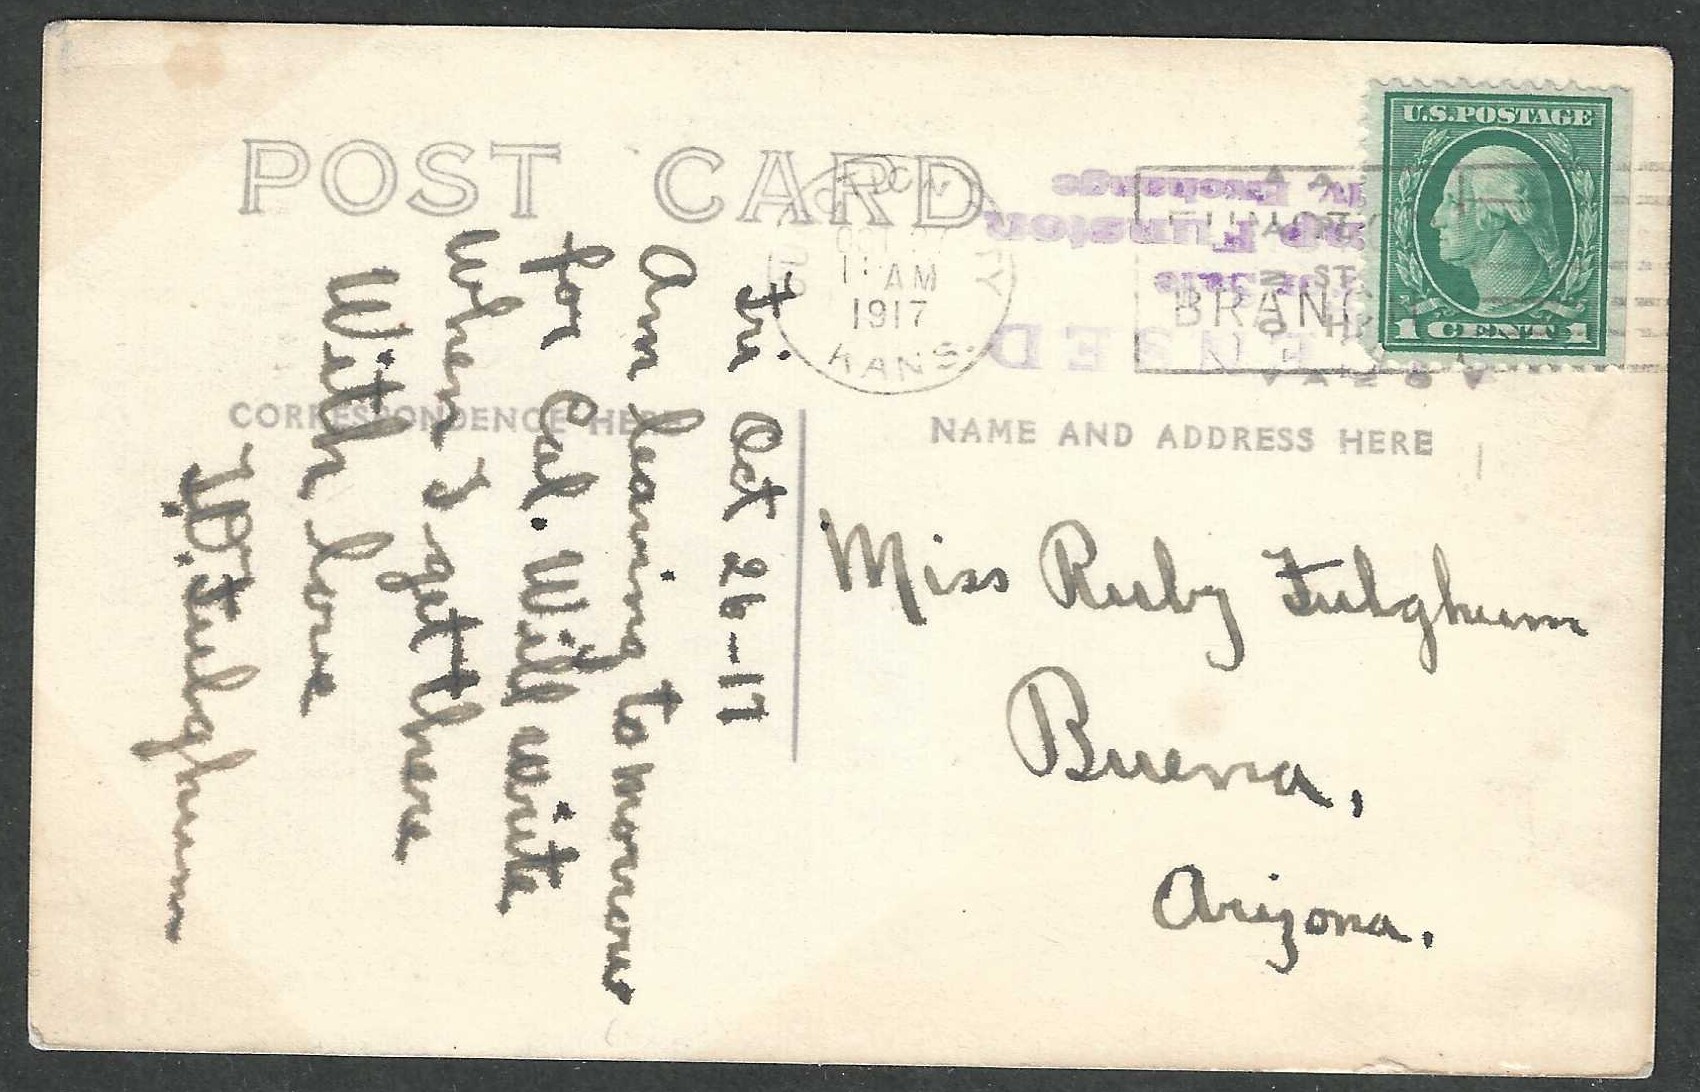 POST CARD
U.S.POSTAGE
1 CENT 1
OCT 27
11 AM
1917
KANS.
BRANCH
CORRESPONDENCE HERE
NAME AND ADDRESS HERE
Fri Oct 26-17
Am leaving tomorrow
for Cal. Will write
when I get there
With love
Fulghum
Miss Ruby Fulghum
Buena,
Arizona.